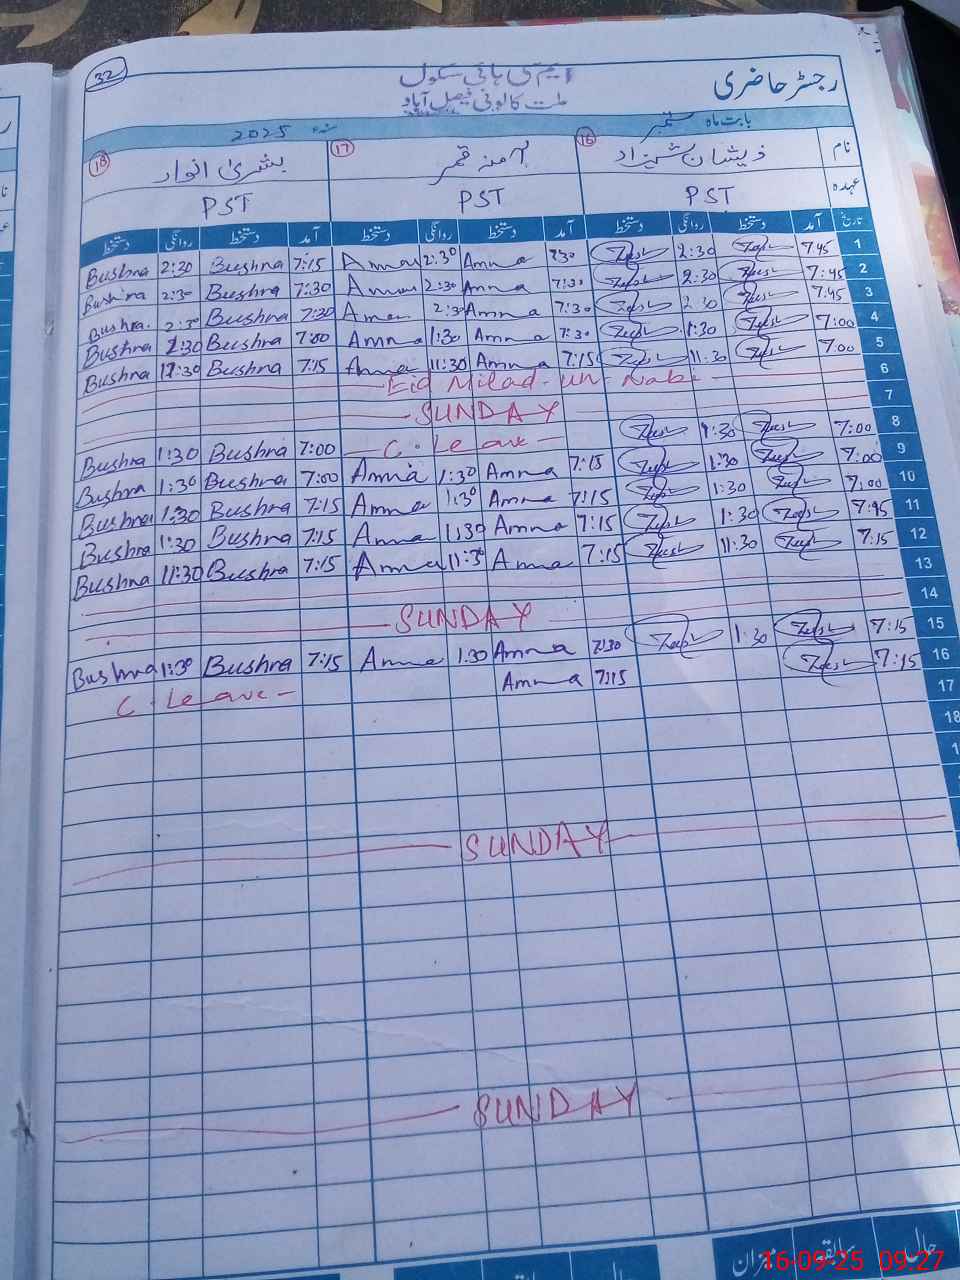 32
ایم سی ہائی سکول
ملت کالونی فیصل آباد
رجسٹر حاضری
بابت ماہ ستمبر سنہ 2025
نام 16 ذیشان شہزاد 17 آمنہ قمر 18 بشریٰ انوار
عہدہ PST PST PST
تاریخ آمد دستخط روانگی دستخط آمد دستخط روانگی دستخط آمد دستخط روانگی دستخط
Bushra 2:30 Bushra 7:15 Amna 2:30 Amna 7:30 2:30 7:45 1
Bushra 2:30 Bushra 7:30 Amna 2:30 Amna 7:30 2:30 7:45 2
Bushra. 2:30 Bushra 7:30 Amna 2:30 Amna 7:30 2:30 7:45 3
Bushra 1:30 Bushra 7:00 Amna 1:30 Amna 7:30 1:30 7:00 4
Bushra 11:30 Bushra 7:15 Amna 11:30 Amna 7:15 11:30 7:00 5
Eid Milad-un-Nabi 6
SUNDAY 7
Bushra 1:30 Bushra 7:00 C. Leave 1:30 7:00 8
Bushra 1:30 Bushra 7:00 Amna 1:30 Amna 7:15 1:30 7:00 9
Bushra 1:30 Bushra 7:15 Amna 1:30 Amna 7:15 1:30 7:00 10
Bushra 1:30 Bushra 7:15 Amna 1:30 Amna 7:15 1:30 11
Bushra 11:30 Bushra 7:15 Amna 11:30 Amna 7:15 11:30 7:15 12
13
SUNDAY 14
Bushra 1:30 Bushra 7:15 Amna 1:30 Amna 7:30 1:30 7:15 15
C. Leave Amna 7:15 7:15 16
17
18
SUNDAY
SUNDAY
میزان سابقہ حال
16-09-25 09:27